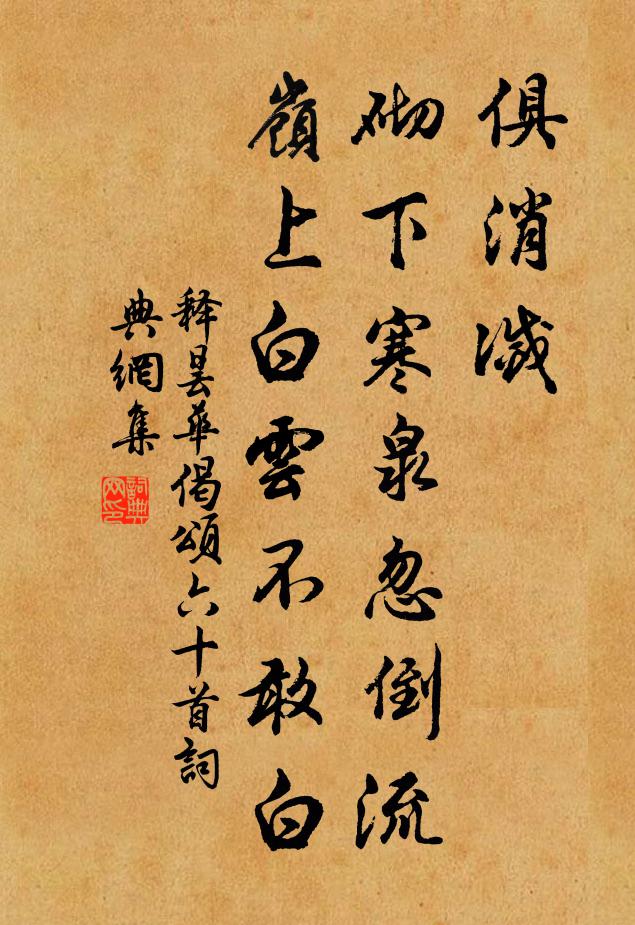 俱消滅
砌下寒泉忽倒流
嶺上白雲不敢白
釋曇華偈頌六十首詞
典網集
詞典
网印